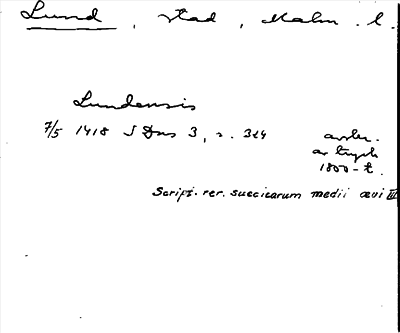 Lund, stad, Malm. l.
Lundensis
7/5 1418 SDns 3, s. 314 avskr.
av tryck
1800-t.
Script. rer. suecicarum medii ævi III